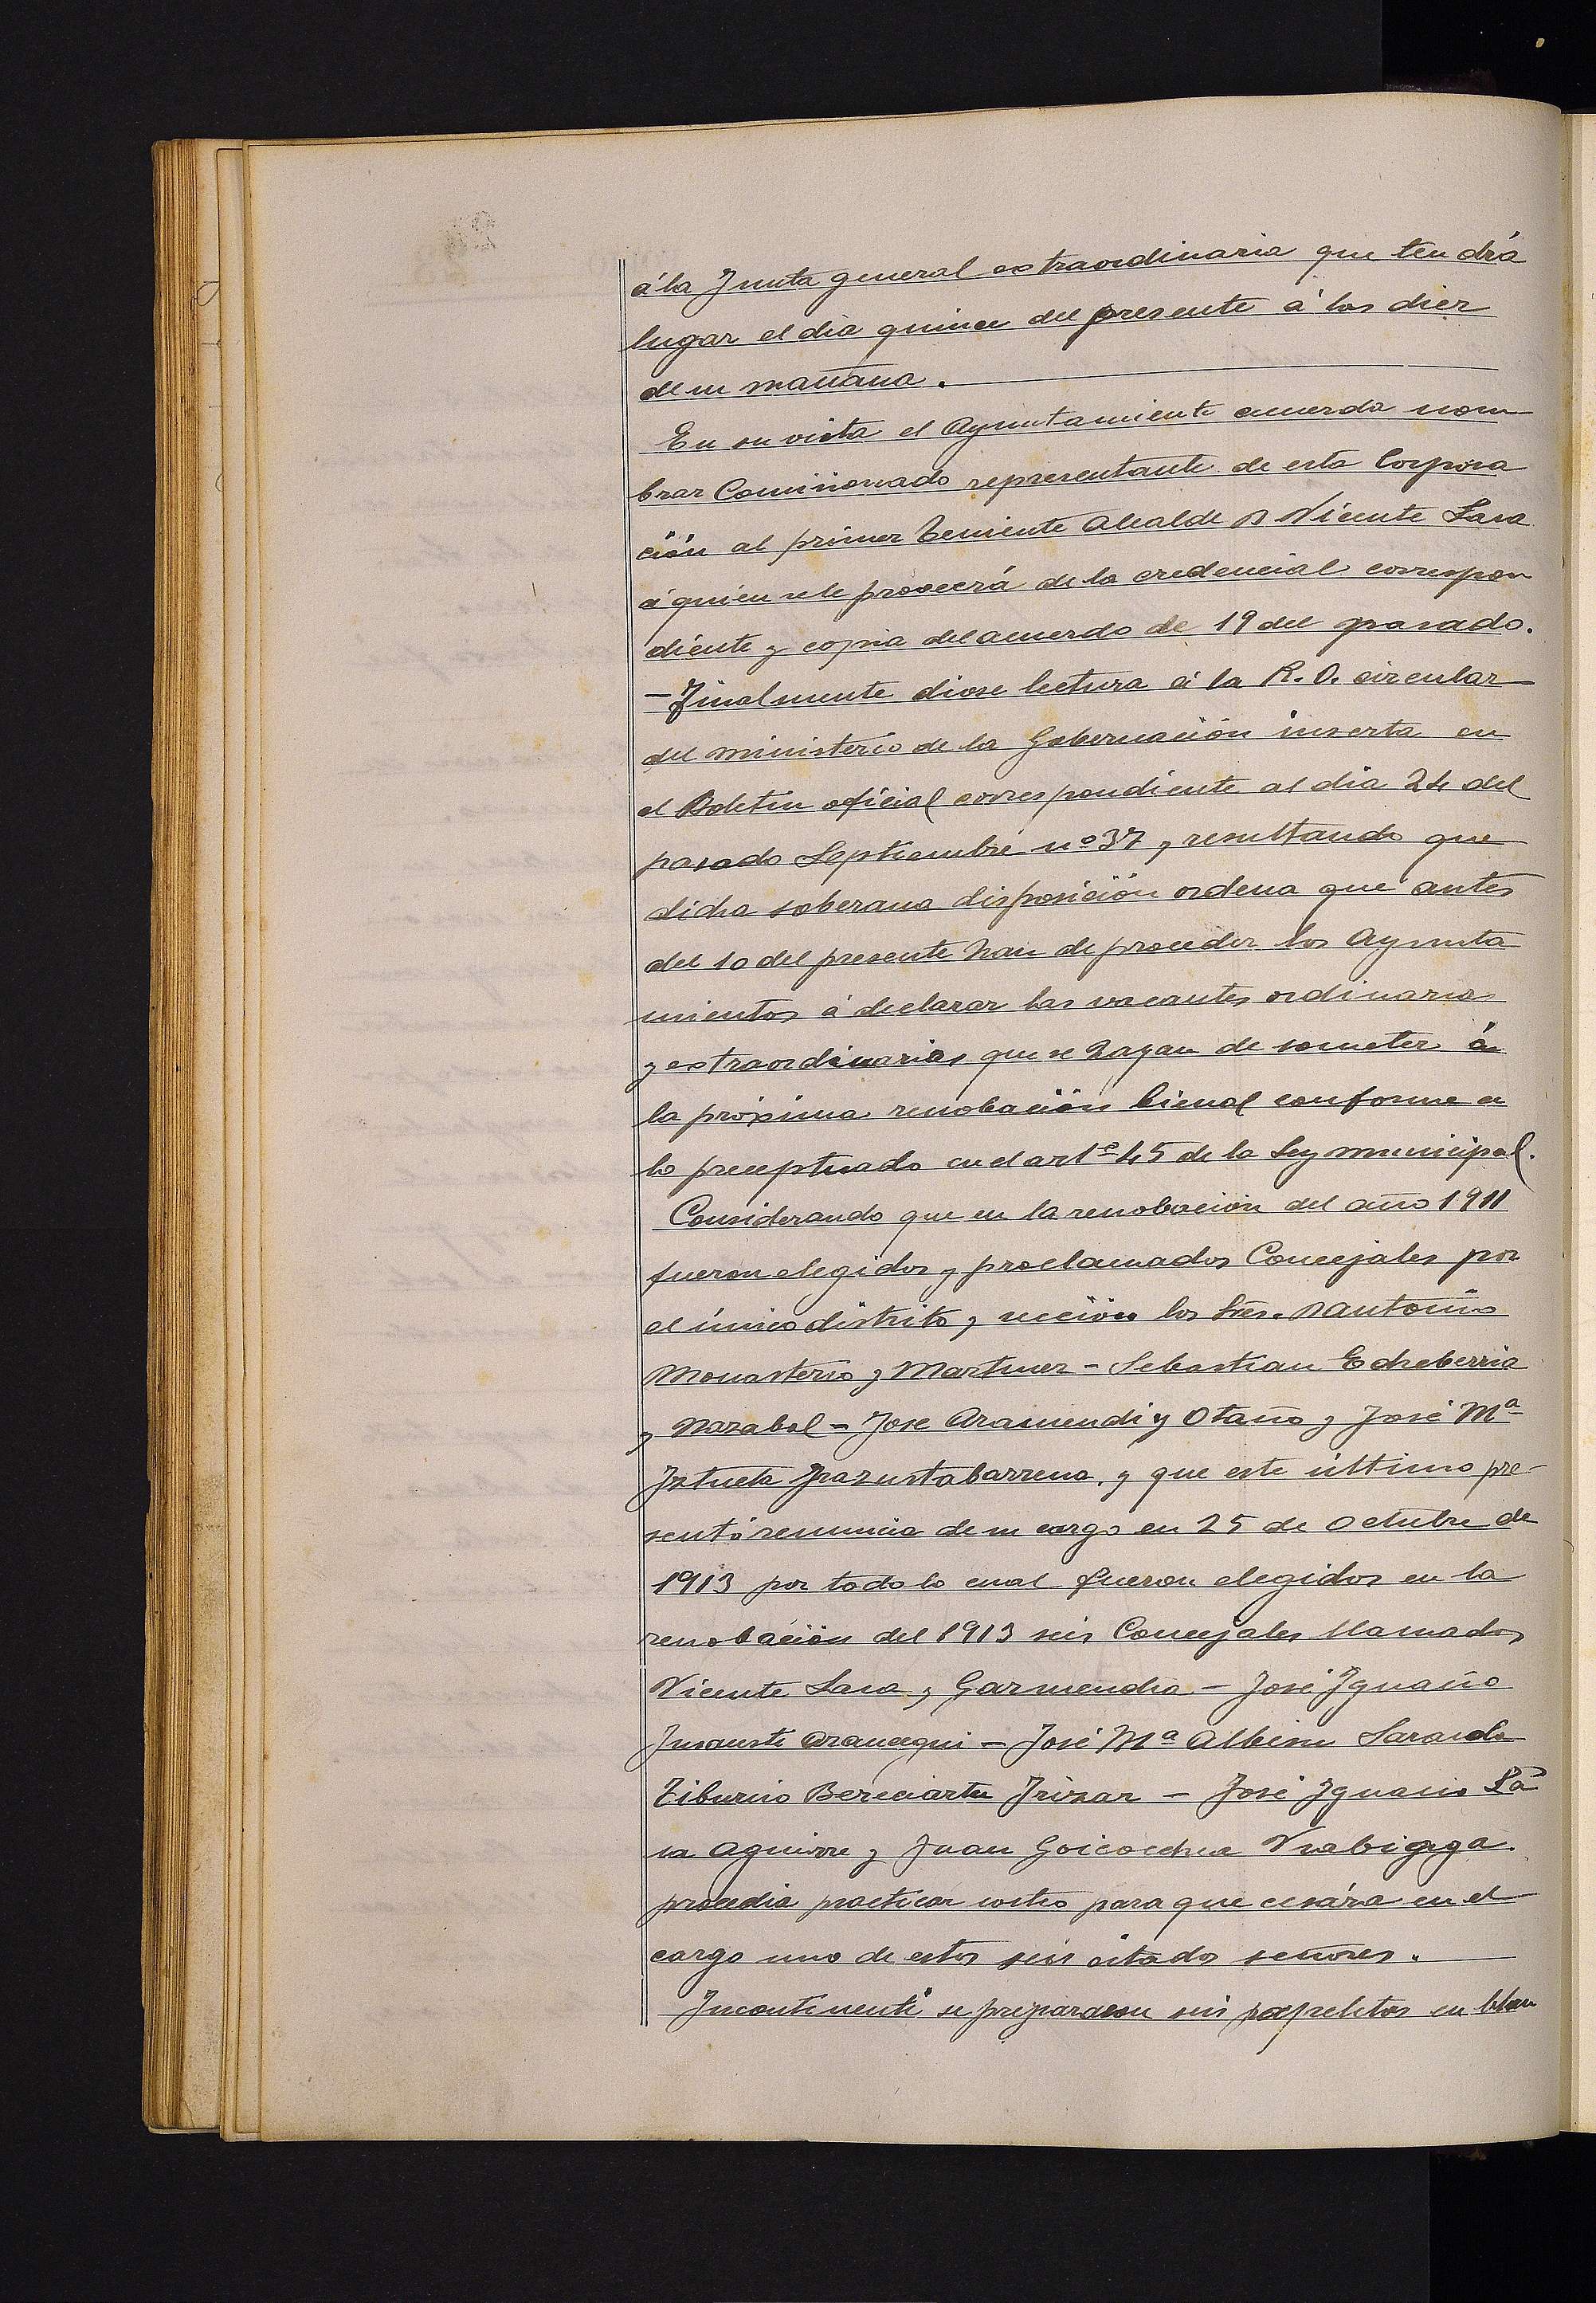 á la Junta general extraordinaria que tendrá
lugar el dia quince del presente á las diez
de su mañana.
En su vista el Ayuntamiento acuerda nom
brar Comisionado representante de esta Corpora
ción al primer Teniente Alcalde D Vicente Lasa
á quien se le proveerá de la credencial correspon
diente y copia del acuerdo de 19 del pasado.
- Finalmente diose lectura á la R. O. circular
del ministerio de la Gobernación inserta en
el Boletin oficial correspondiente al dia 24 del
pasado Septiembre nº 37 y resultando que
dicha soberana disposición ordena que antes
del 10 del presente han de proceder los Ayunta
mientos á declarar las vacantes ordinarias
y extraordinarias que se hayan de someter á
la próxima renobación bienal conforme a
lo preceptuado en el artº 45 de la Ley municipal.
Considerando que en la renobación del año 1911
fueron elegidos y proclamados Concejales por
el único distrito y sección los Sres. D Antonio
Monasterio y Martinez - Sebastian Echeberria
y Nazabal - Jose Aramendi y Otaño y José Mª
Iztueta Irazustabarrena, y que este último pre-
sentó renuncia de su cargo en 25 de Octubre de
1913 por todo lo cual fueron elegidos en la
renobación del 1913 seis Concejales llamados
Vicente Lasa y Garmendia - José Ignacio
Insausti Arancegui - José Mª Albisu
Tiburcio Bereciartu Irizar - José Ignacio La
sa Aguirre y Juan Goicoechea
procedia practicar sorteo para que cesára en el
cargo uno de estos seis citados señores.
Incontinenti se prepararon seis papeletas en blan